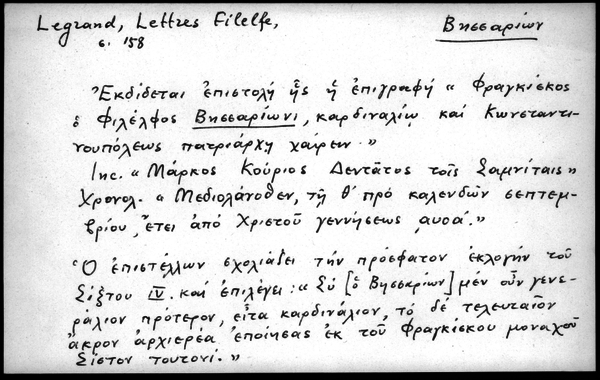 Legrand, Lettres Filelfe,
Βησσαρίων
σ. 158
Ἐκδίδεται ἐπιστολή ἧς ἡ ἐπιγραφή « Φραγκίσκος
ὁ Φιλέλφος Βησσαρίωνι, καρδιναλίῳ καί Κωνσταντι-
νουπόλεως πατριάρχῃ χαίρειν. »
Inc. « Μάρκος Κούριος Δεντᾶτος τοῖς Σαμνίταις »
Χρονολ. « Μεδιολάνοθεν, τῇ θ' πρό καλενδῶν σεπτεμ-
βρίου, ἔτει ἀπό Χριστοῦ γεννήσεως ͵αυοά. »
Ὁ ἐπιστέλλων σχολιάζει τήν πρόσφατον ἐκλογήν τοῦ
Σίξτου IV. καί ἐπιλέγει : « Σύ [ὁ Βησσαρίων] μέν οὖν γενε-
ράλιον πρότερον, εἶτα καρδινάλιον, τό δέ τελευταῖον
ἄκρον ἀρχιερέα ἐποίησας ἐκ τοῦ Φραγκίσκου μοναχοῦ
Σίστον τουτονί. »